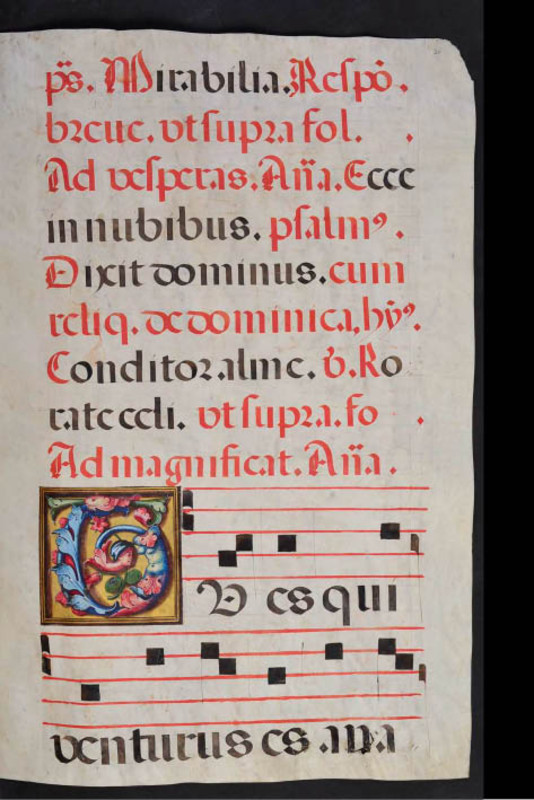 ps. Mirabilia. Respō.
breue. vt supra fol. .
Ad vesperas. Aña. Ecce
in nubibus. psalmꝰ.
Dixit dominus. cum
reliq. de dominica, hy̅ꝰ.
Conditor alme. v̄. Ro
rate celi. vt supra. fo .
Ad magnificat. Aña.
TV es qui
venturus es . an